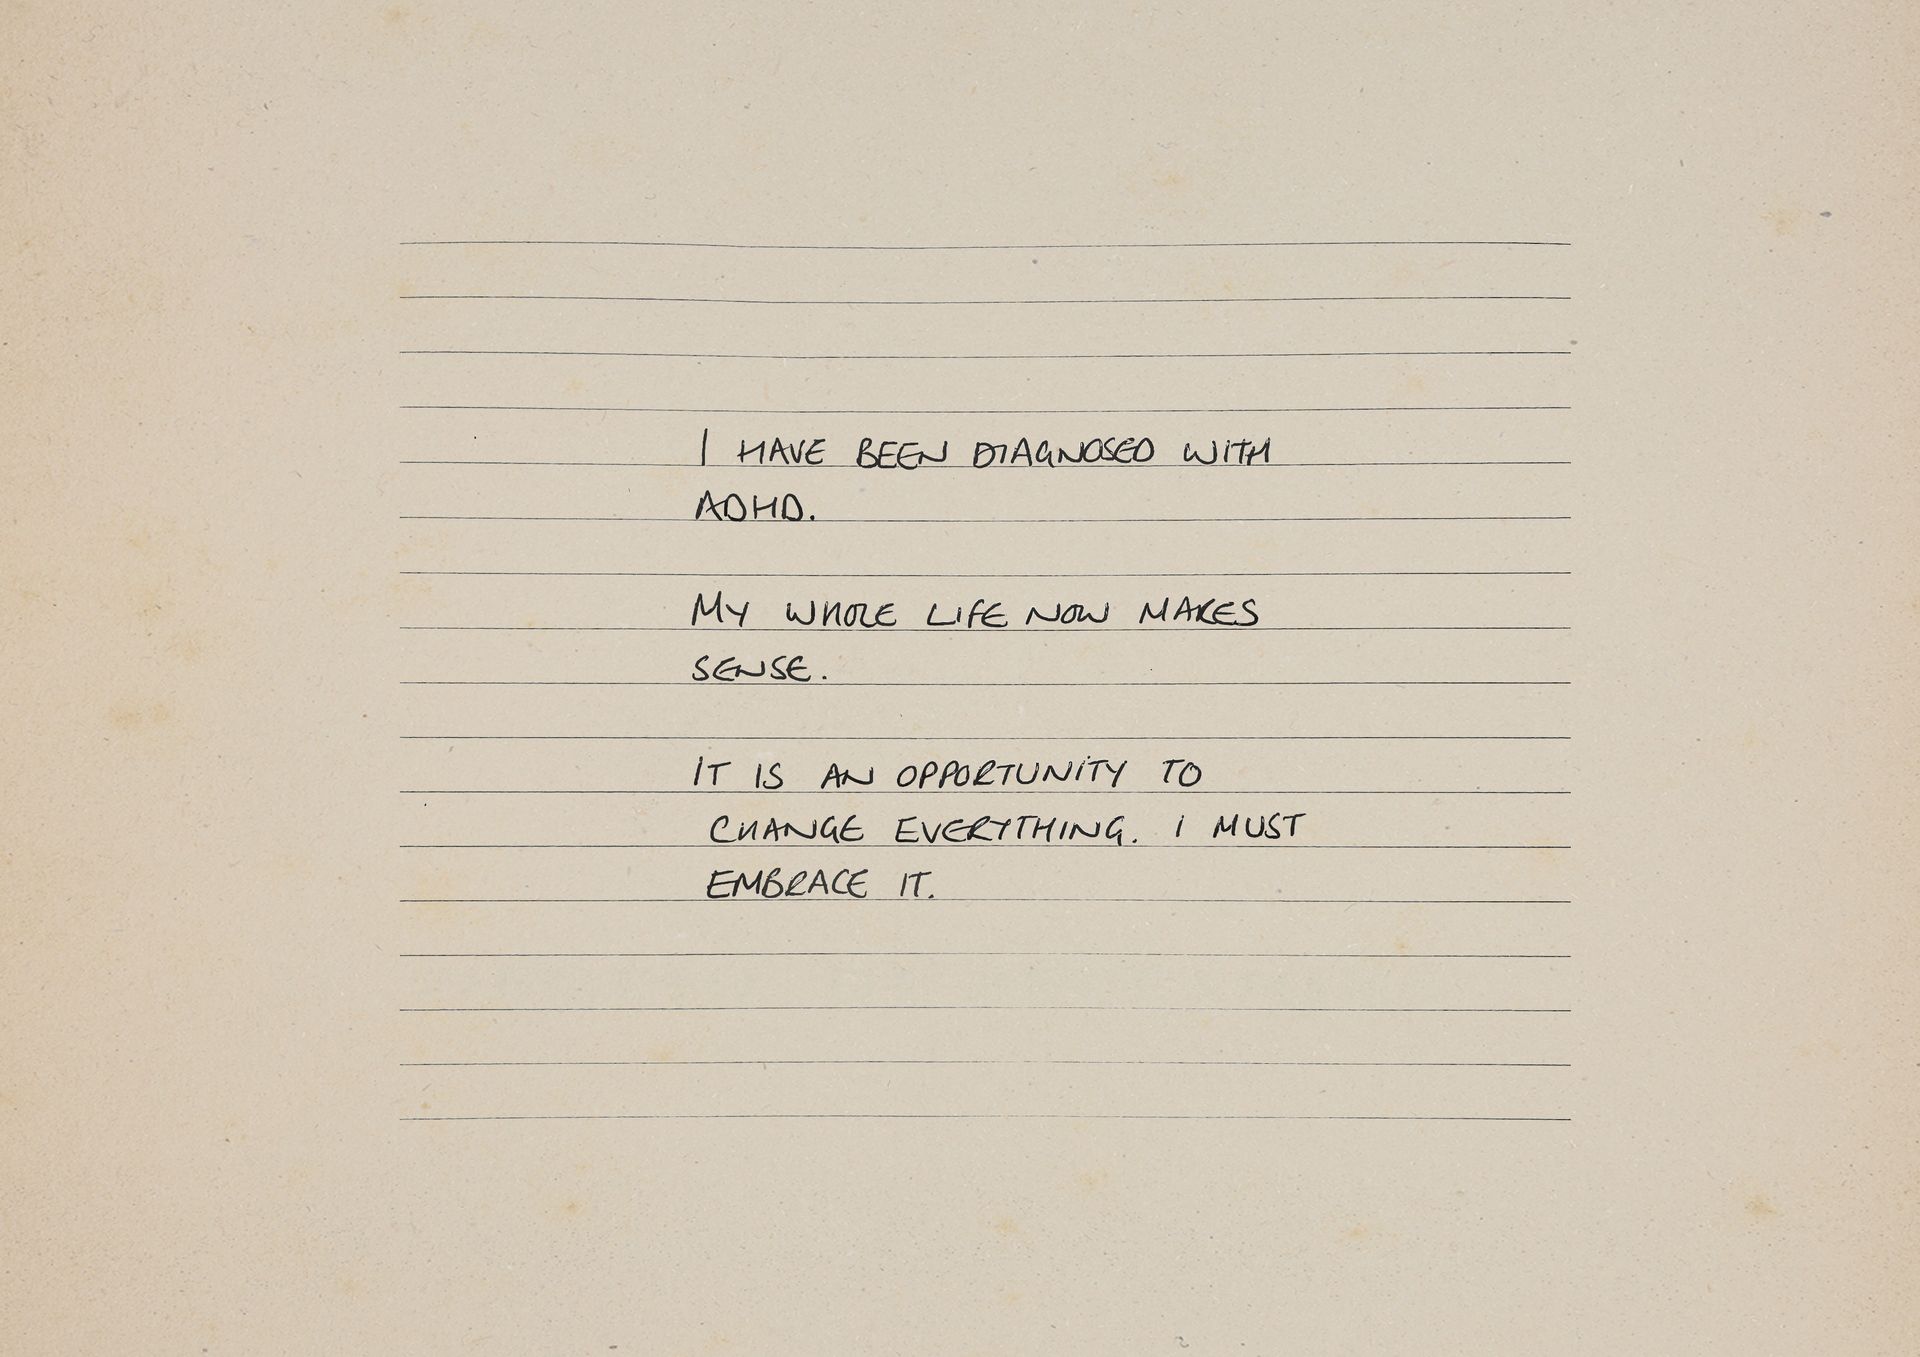 I HAVE BEEN DIAGNOSED WITH
ADHD.
MY WHOLE LIFE NOW MAKES
SENSE.
IT IS AN OPPORTUNITY TO
CHANGE EVERYTHING. I MUST
EMBRACE IT.